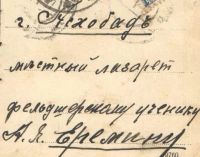 г. Асхобадъ
мѣстный лазарет
фельдшерскому ученику
А. Я. Еремину